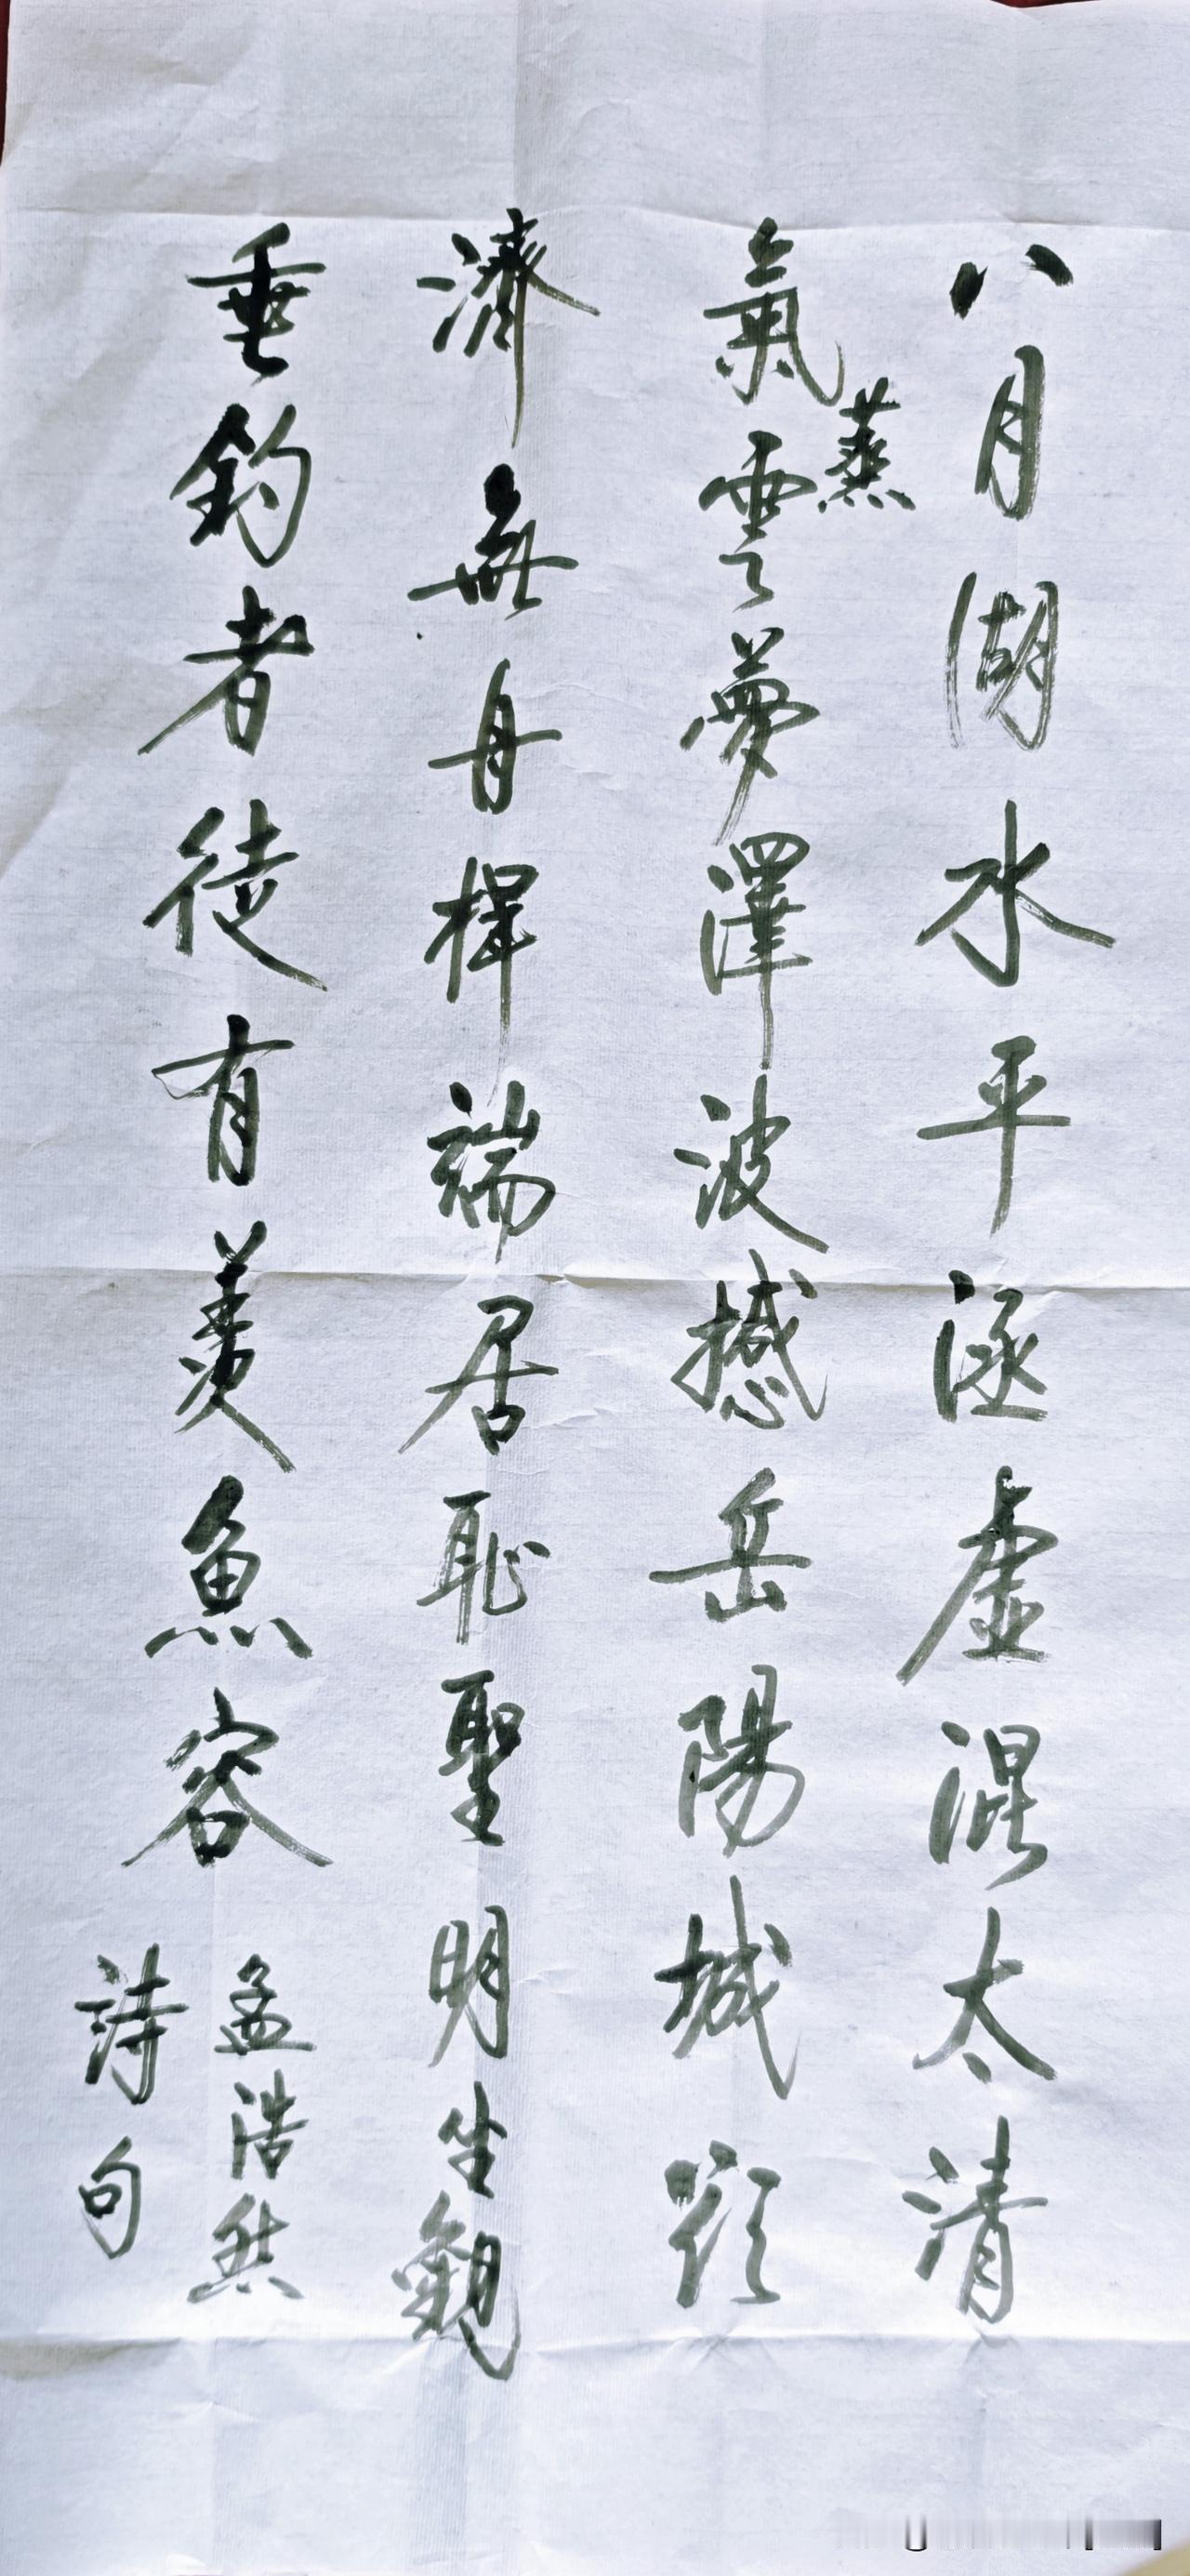 八月湖水平涵虚混太清
氣蒸雲夢澤波撼岳陽城欲
濟無舟楫端居恥聖明坐觀
垂釣者徒有羨魚容
孟浩然
詩句